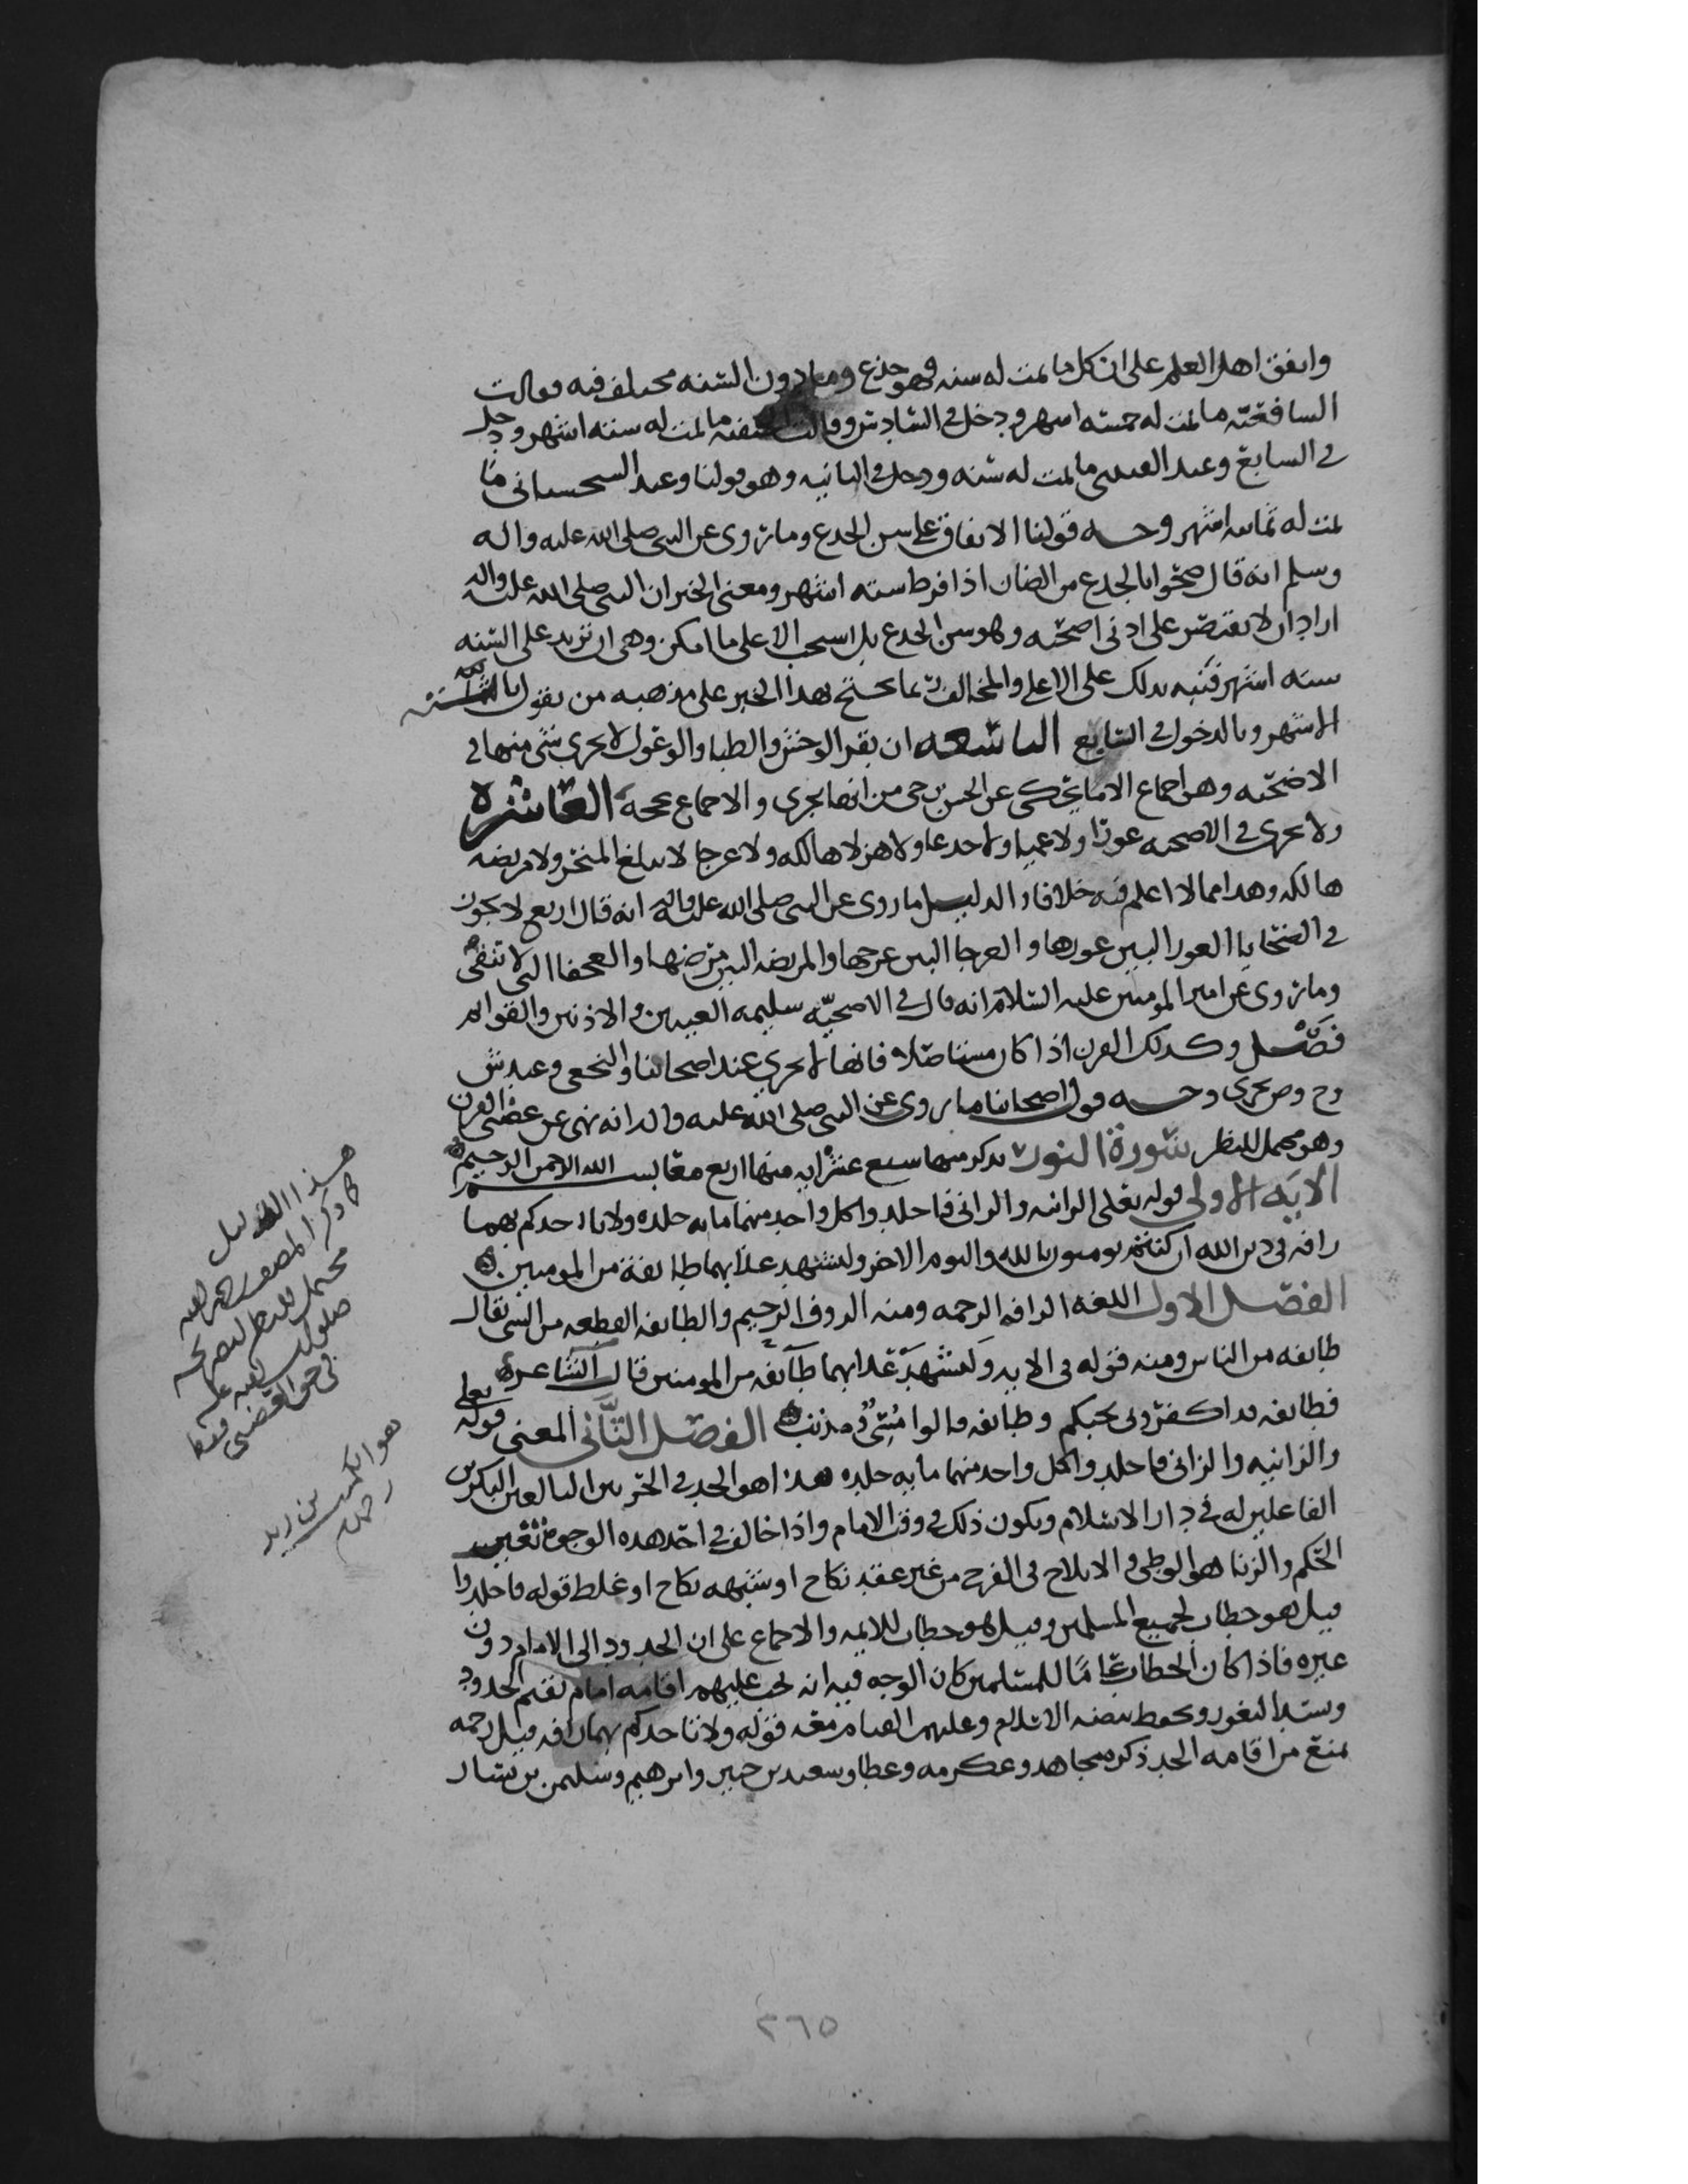 واتفق اهل العلم على ان كل ما تمت له سنه فهو جذع وما دون السنه مختلف فيه فقالت
الشافعيه ما تمت له خمسه اشهر ودخل في السادس وقالت الحنفيه ما تمت له سته اشهر ودخل
في السابع وعند القتيبي ما تمت له سنه ودخل في الثانيه وهو قولنا وعند السجستاني ما
تمت له ثمانيه اشهر وجه قولنا الاتفاق على سن الجذع وما روي عن النبي صلى الله عليه واله
وسلم انه قال ضحوا بالجذع من الضان اذا فرط سته اشهر ومعنى الخبر ان النبي صلى الله عليه واله
اراد ان لا يقتصر على ادنى اضحيه وهو سن الجذع بل استحب الاعلى ما امكن وهي ان تزيد على السنه
سته اشهر فنبه بذلك على الاعلى والمخالف ربما يحتج بهذا الخبر على مذهبه من يقول بالسته
الاشهر وبالدخول في السابع التاسعه ان بقر الوحش والظبا والوعول لا يجزي شي منها في
الاضحيه وهو اجماع الا ما يحكى عن الحسن بن حي من انها تجزي والاجماع حجه العاشره
ولا يجزي في الاضحيه عورا ولا عميا ولا جدعا ولا هزلا هالكه ولا عرجا لا تبلغ المنحر ولا مريضه
هالكه وهذا مما لا اعلم فيه خلافا والدليل ما روي عن النبي صلى الله عليه واله انه قال اربع لا تجوز
في الضحايا العورا البين عورها والعرجا البين عرجها والمريضه البين مرضها والعجفا التي لا تنقي
وما روي عن امير المومنين عليه السلام انه قال في الاضحيه سليمه العينين والاذنين والقوايم
فصل وكذلك القرن اذا كان مستاصلا فانها لا تجزي عند اصحابنا والنخعي وعند ش
وح وص تجزي وجه قول اصحابنا ما روي عن النبي صلى الله عليه واله انه نهى عن عضبا القرن
وهو محمل للنظر سورة النور نذكر منها سبع عشر ايه منها اربع معا بسم الله الرحمن الرحيم
الايه الاولى قوله تعلى الزانيه والزاني فاجلدوا كل واحد منهما مايه جلده ولا تاخذكم بهما
رافه في دين الله ان كنتم تومنون بالله واليوم الاخر وليشهد عذابهما طايفة من المومنين
الفصل الاول اللغه الرافه الرحمه ومنه الروف الرحيم والطايفه القطعه من الشي يقال
طايفه من الناس ومنه قوله في الايه وليشهد عذابهما طايفه من المومنين قال الشاعر
فطايفه قد اكفروني بحبكم وطايفه قالوا مسي ومذنب الفصل الثاني المعنى قوله تعلى
والزانيه والزاني فاجلدوا كل واحد منهما مايه جلده هذا هو الحد في الحرين البالغين البكرين
الفاعلين له في دار الاسلام ويكون ذلك في وقت الامام واذا خالف في احد هذه الوجوه تغير
الحكم والزنا هو الوطي والايلاج في الفرج من غير عقد نكاح او شبهه نكاح او غلط قوله فاجلدوا
قيل هو خطاب لجميع المسلمين وقيل هو خطاب للايمه والاجماع على ان الحدود الى الامام دون
غيره فاذا كان الخطاب عاما للمسلمين كان الوجه فيه انه يجب عليهم اقامه امام يقيم الحدود
ويسد الثغور ويحوط بيضه الاسلام وعليهم القيام معه قوله ولا تاخذكم بهما رافه قيل رحمه
تمنع من اقامه الحد ذكره مجاهد وعكرمه وعطا وسعيد بن جبير وابرهيم وسليمن بن يسار
هذا الدليل
كما ذكر المصنف رحمه الله
محمل للنظر
صلوات الله عليه
هو الكريـ بن زيد
رحمه
٢٦٥